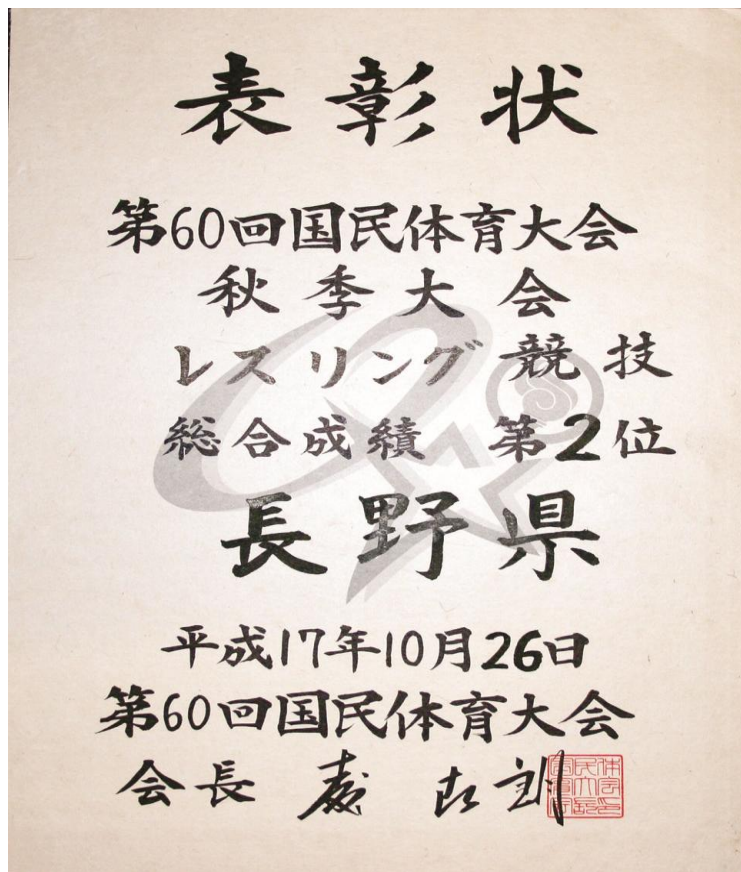 表彰状
第60回国民体育大会
秋季大会
レスリング競技
総合成績 第2位
長野県
平成17年10月26日
第60回国民体育大会
会長